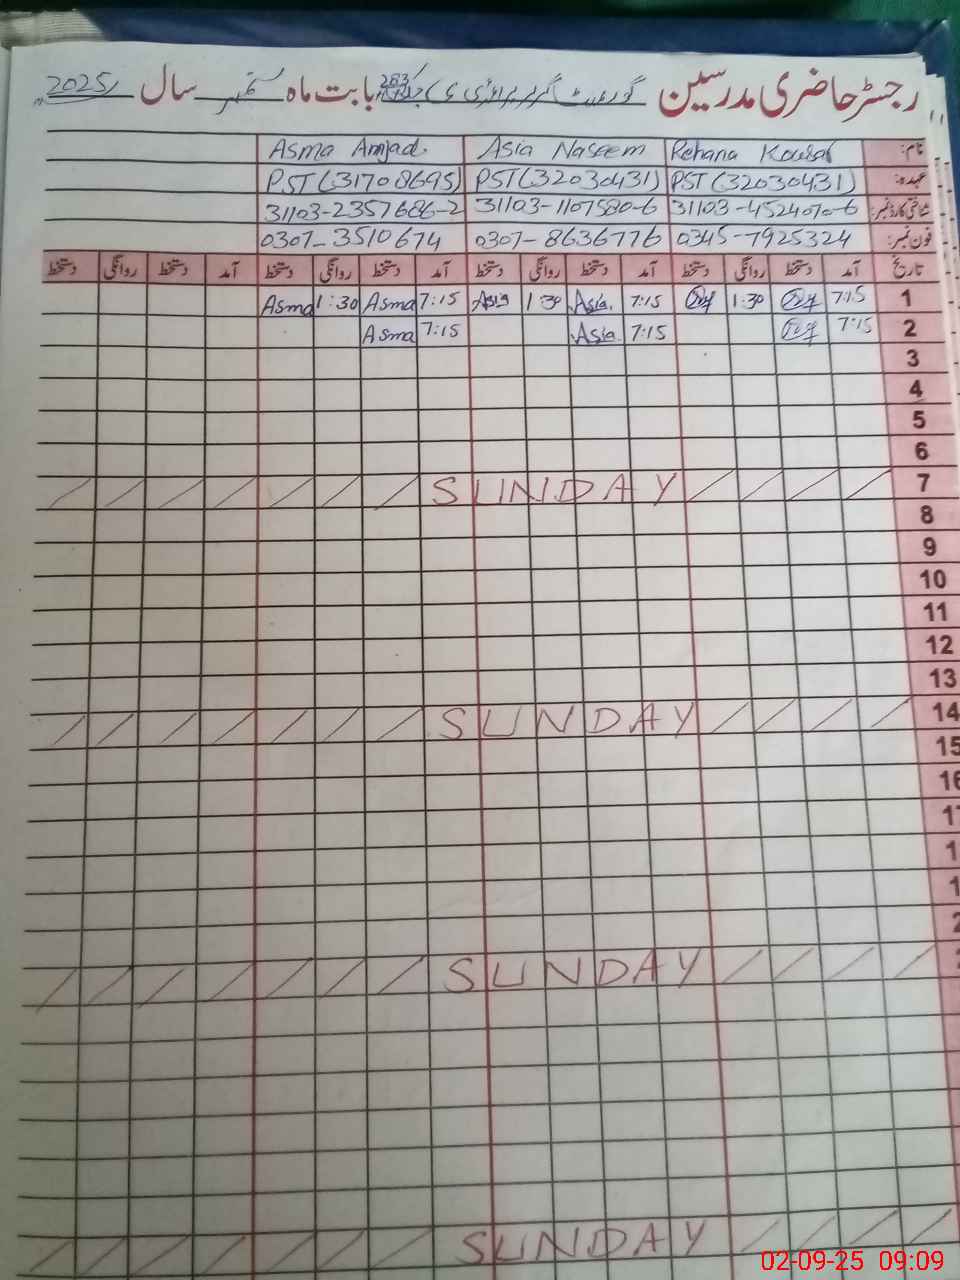 رجسٹر حاضری مدرسین گورنمنٹ گرلز پرائمری 283 بابت ماہ ستمبر سال 2025
نام: Rehana Kousar Asia Naseem Asma Amjad
عہدہ: PST(32030431) PST(32030431) PST(31708695)
شناختی کارڈ نمبر: 31103-4524070-6 31103-1107580-6 31103-2357686-2
فون نمبر: 0345-7925324 0307-8636776 0307-3510674
تاریخ آمد دستخط روانگی دستخط آمد دستخط روانگی دستخط آمد دستخط روانگی دستخط آمد دستخط روانگی دستخط
1 7:15 1:30 7:15 Asia 1:30 Asia 7:15 Asma 1:30 Asma
2 7:15 7:15 Asia 7:15 Asma
3
4
5
6
7 SUNDAY
8
9
10
11
12
13
14 SUNDAY
15
16
SUNDAY
SUNDAY
02-09-25 09:09